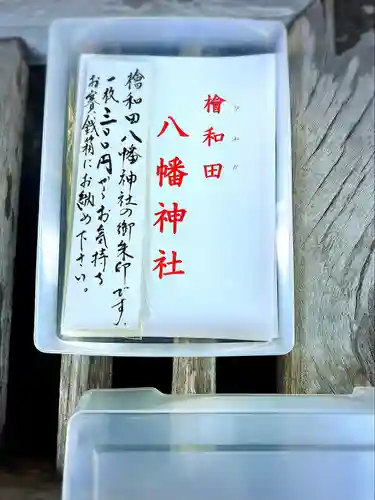 檜和田
ひわだ
八幡神社
檜和田八幡神社の御朱印です。
一枚三〇〇円からお気持ち
お賽銭箱にお納め下さい。